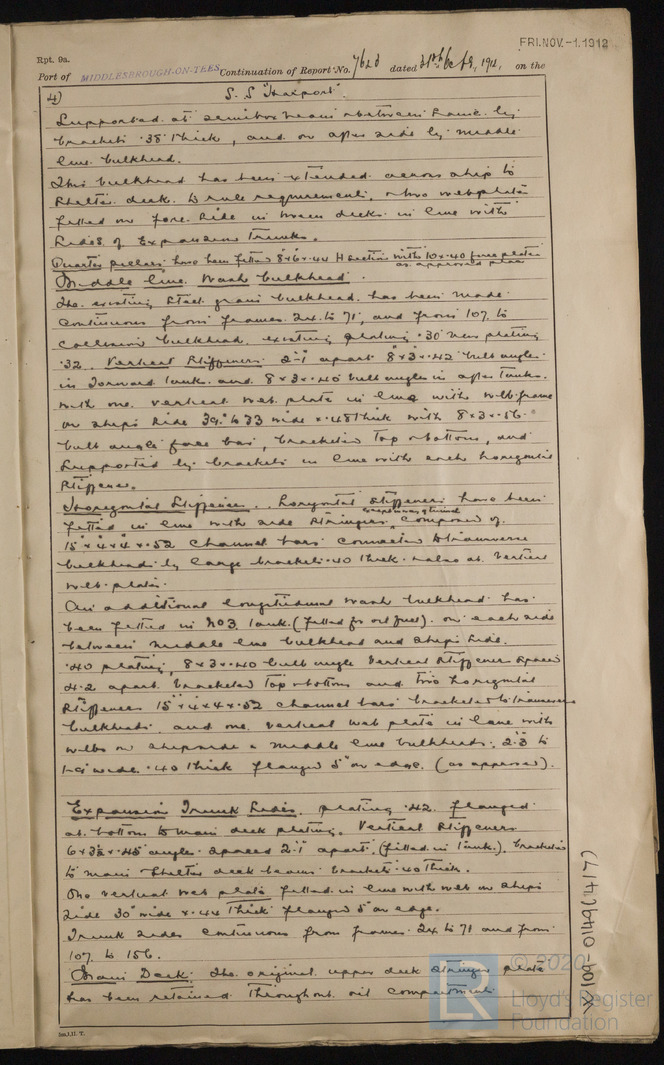 FRI. NOV. -1. 1912
Rpt. 9a.
Port of MIDDLESBROUGH-ON-TEES Continuation of Report No. 7623 dated 31st Oct, 191, on the
4) S.S "Harport".
Supported at semibox beam between by
brackets .38 thick, and on after side by middle
line bulkhead.
This bulkhead has been extended across ship to
Shelter deck to rule requirements, two webplates
fitted on fore side in tween decks in line with
sides of Expansion Trunks.
Quarter pillars have been fitted 8 x 6 x .44 H section with 10 x .40 face plates
as approved plan
Middle line Wash bulkhead.
The existing steel grain bulkhead has been made
continuous from frames 24 to 71, and from 107 to
collision bulkhead, existing plating .30 new plating
.32. Vertical Stiffeners 2'-1" apart 8" x 3" x .42 bulb angles
in forward tank and 8 x 3 x .40 bulb angles in after tanks.
with one vertical web plate in line with web frame
on ships side 39" to 33 wide x .48 thick with 8 x 3 x .56
bulb angle face bar, bracketed top & bottom, and
supported by brackets in line with each horizontal
stiffener.
Horizontal Stiffeners. Horizontal stiffeners have been
fitted in line with side stringers, composed of
15" x 4" x 4" x .52 channel bars connected to transverse
bulkheads by large brackets .40 thick & also at vertical
web plates.
An additional longitudinal wash bulkhead has
been fitted in No 3 tank (fitted for oil fuel) on each side
between middle line bulkhead and ships side.
.40 plating, 8 x 3 x .40 bulb angle vertical stiffeners spaced
4-2 apart bracketed top & bottom and two horizontal
stiffeners 15" x 4" x 4" x .52 channel bars bracketed to transverse
bulkheads, and one vertical web plate in line with
webs on shipside & middle line bulkheads, 2'-3" to
1-9 wide .40 thick flanged 5" on edge. (as approved).
Expansion Trunk Sides. plating .42 flanged
at bottom to main deck plating. Vertical Stiffeners
6 x 3½ x .45 angles spaced 2'-1" apart, (fitted in tank), bracketed
to main & shelter deck beams brackets .40 thick.
One vertical web plate fitted in line with web on ships
side 30" wide x .44 thick flanged 5" on edge.
Trunk sides continuous from frames 24 to 71 and from
107 to 156.
Main Deck. The original upper deck stringer plate
has been retained throughout oil compartment
W109-0149 (4/7)
© 2020
LR
Lloyd's Register
Foundation